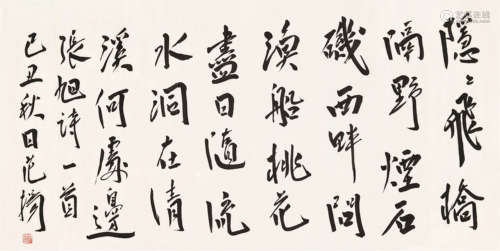 隱〻飛橋
隔野煙石
磯西畔問
漁船桃花
盡日隨流
水洞在清
溪何處邊
張旭詩一首
己丑秋日范揚